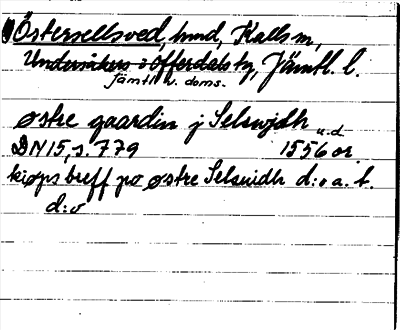 Östersellsved, hmd, Kalls sn,
Undersåkers o Offerdals tg, Jämtl. l.
jämtl. v. doms.
østre gaardin j Selswjdh
u.d.
DN15, s. 779 1556 or.
kiøps breff po østre Selsuidh d:o a. b.
d:o